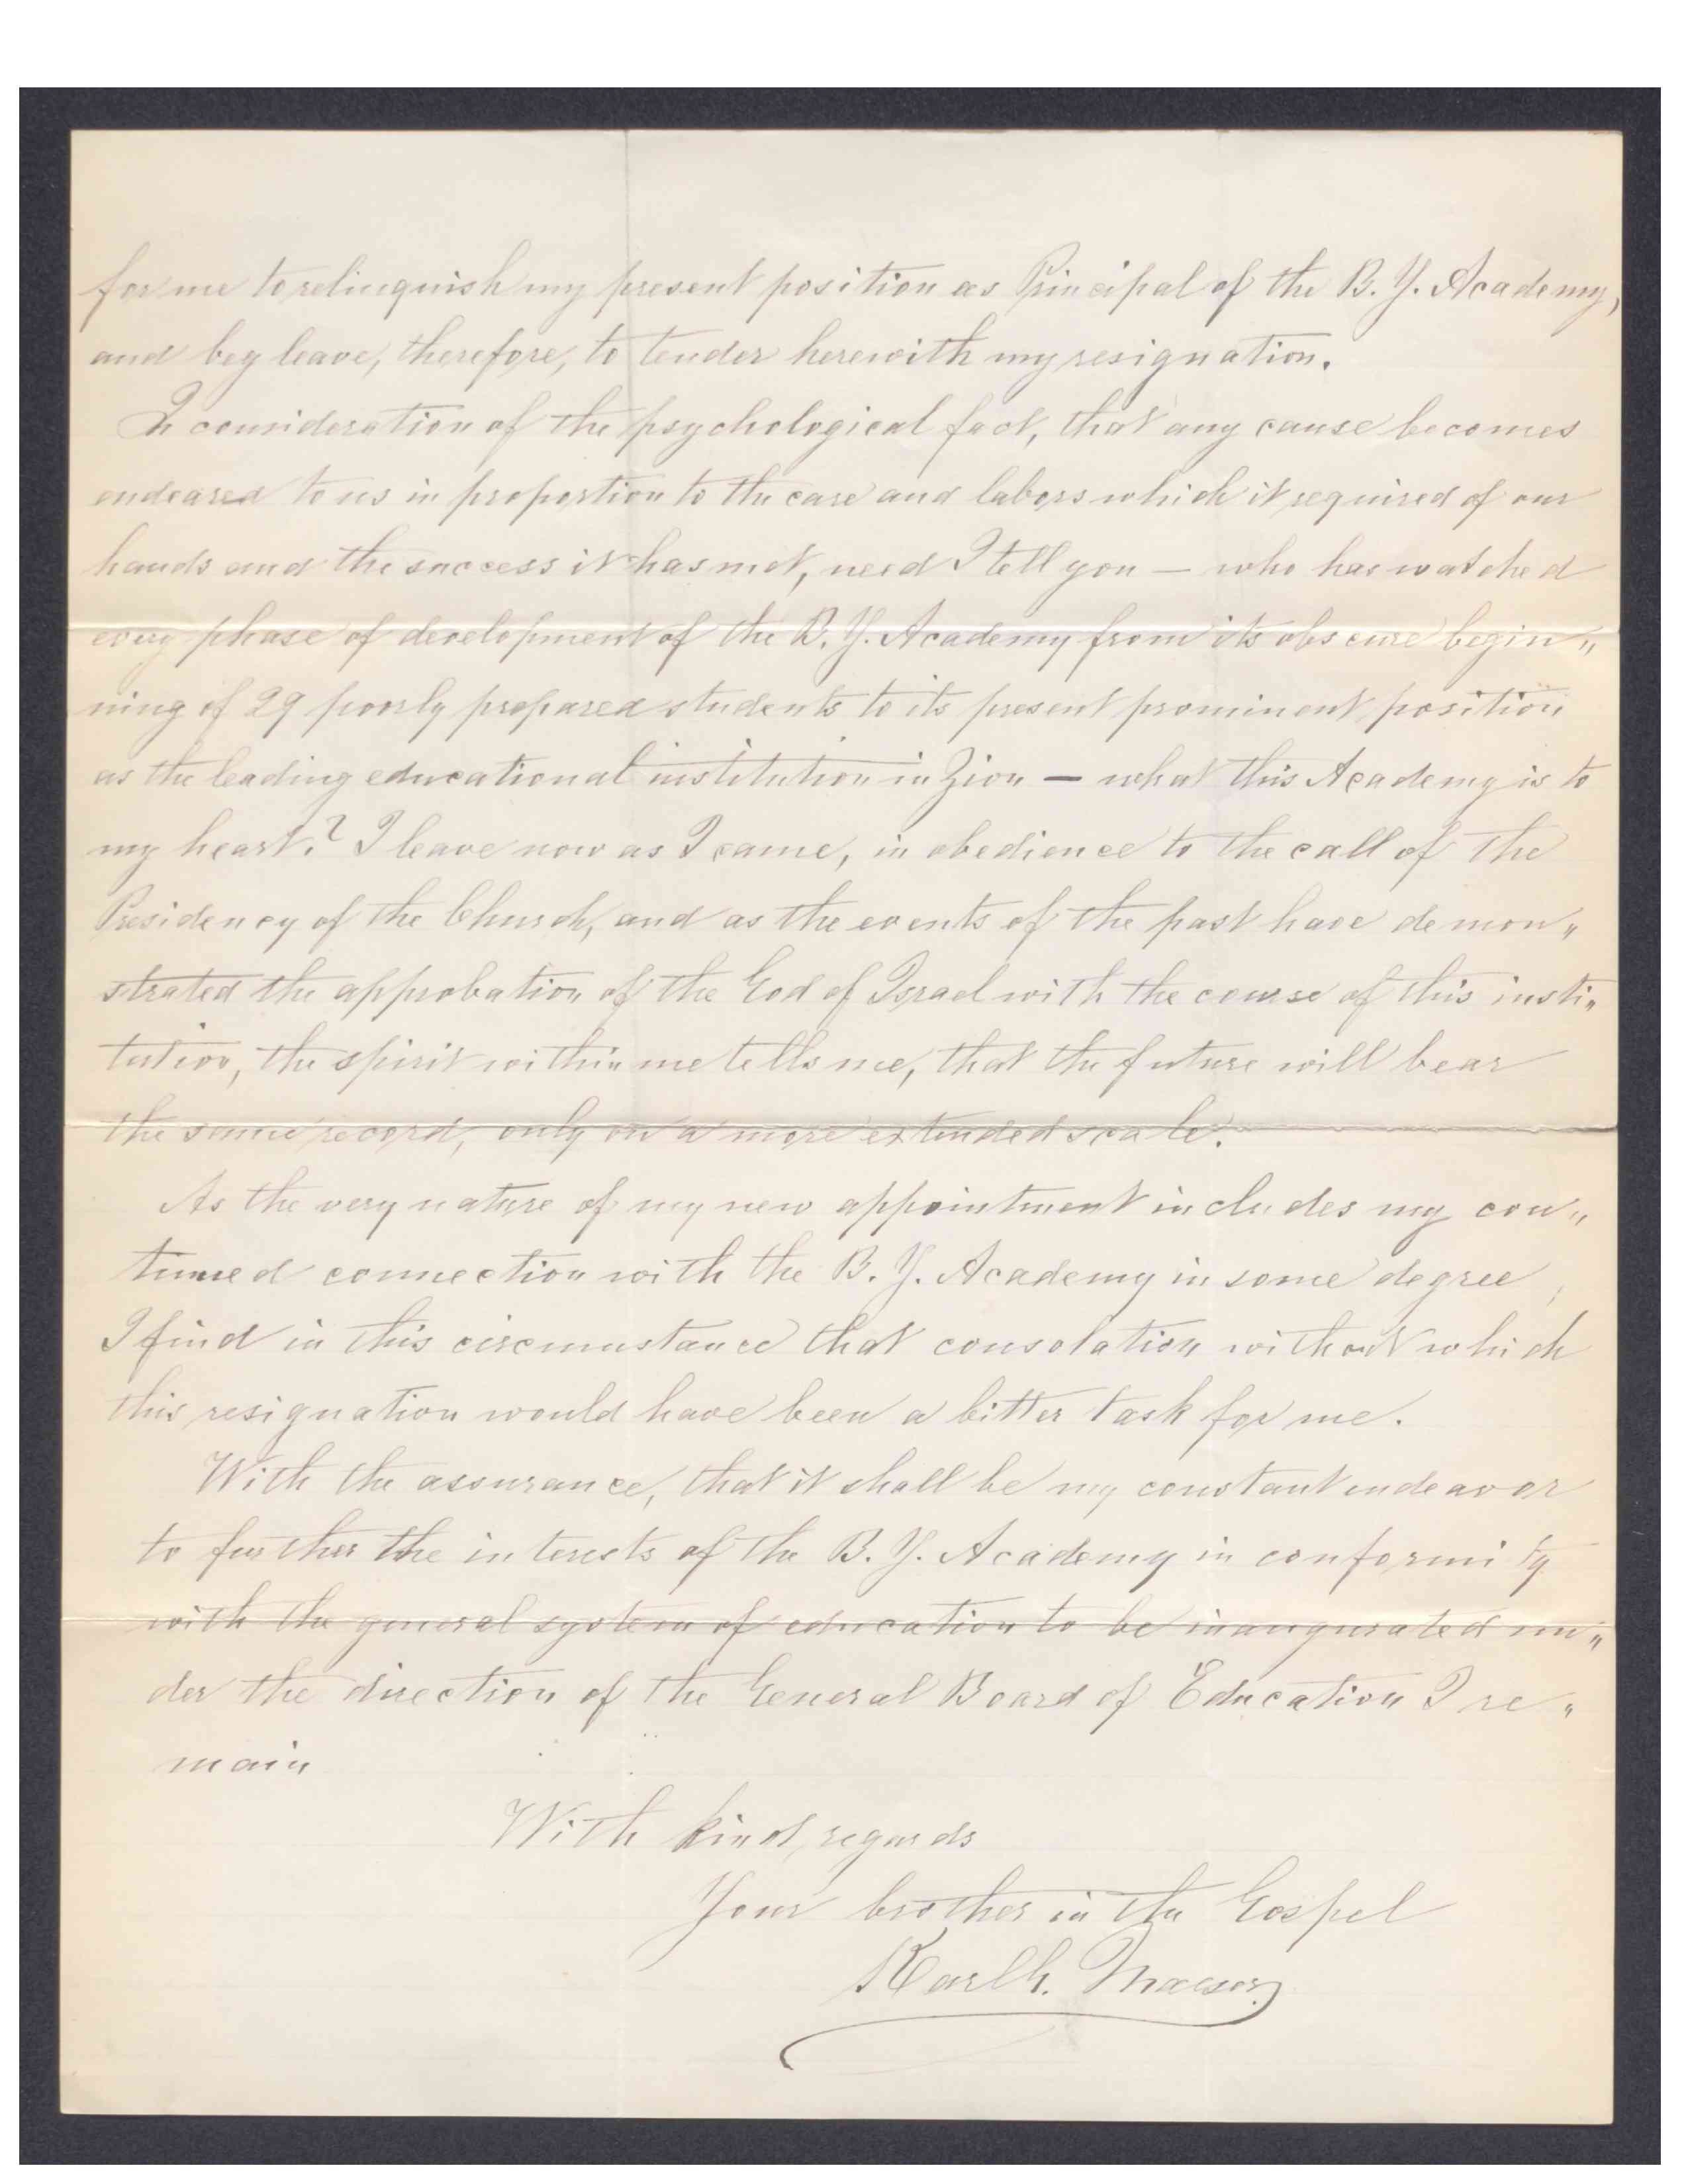 for me to relinquish my present position as Principal of the B. Y. Academy,
and beg leave, therefore, to tender herewith my resignation.
In consideration of the psychological fact, that any cause becomes
endeared to us in proportion to the care and labors which it required of our
hands and the success it has met, need I tell you — who has watched
every phase of development of the B. Y. Academy from its obscure begin„
ning of 29 poorly prepared students to its present prominent position
as the leading educational institution in Zion — what this Academy is to
my heart? I leave now as I came, in obedience to the call of the
Presidency of the Church, and as the events of the past have demon„
strated the approbation of the God of Israel with the course of this insti„
tution, the spirit within me tells me, that the future will bear
the same record, only on a more extended scale.
As the very nature of my new appointment includes my con„
tinued connection with the B. Y. Academy in some degree,
I find in this circumstance that consolation without which
this resignation would have been a bitter task for me.
With the assurance, that it shall be my constant endeavor
to further the interests of the B. Y. Academy in conformity
with the general system of education to be inaugurated un„
der the direction of the General Board of Education I re„
main
With kind regards
Your brother in the Gospel
Karl G. Maeser.